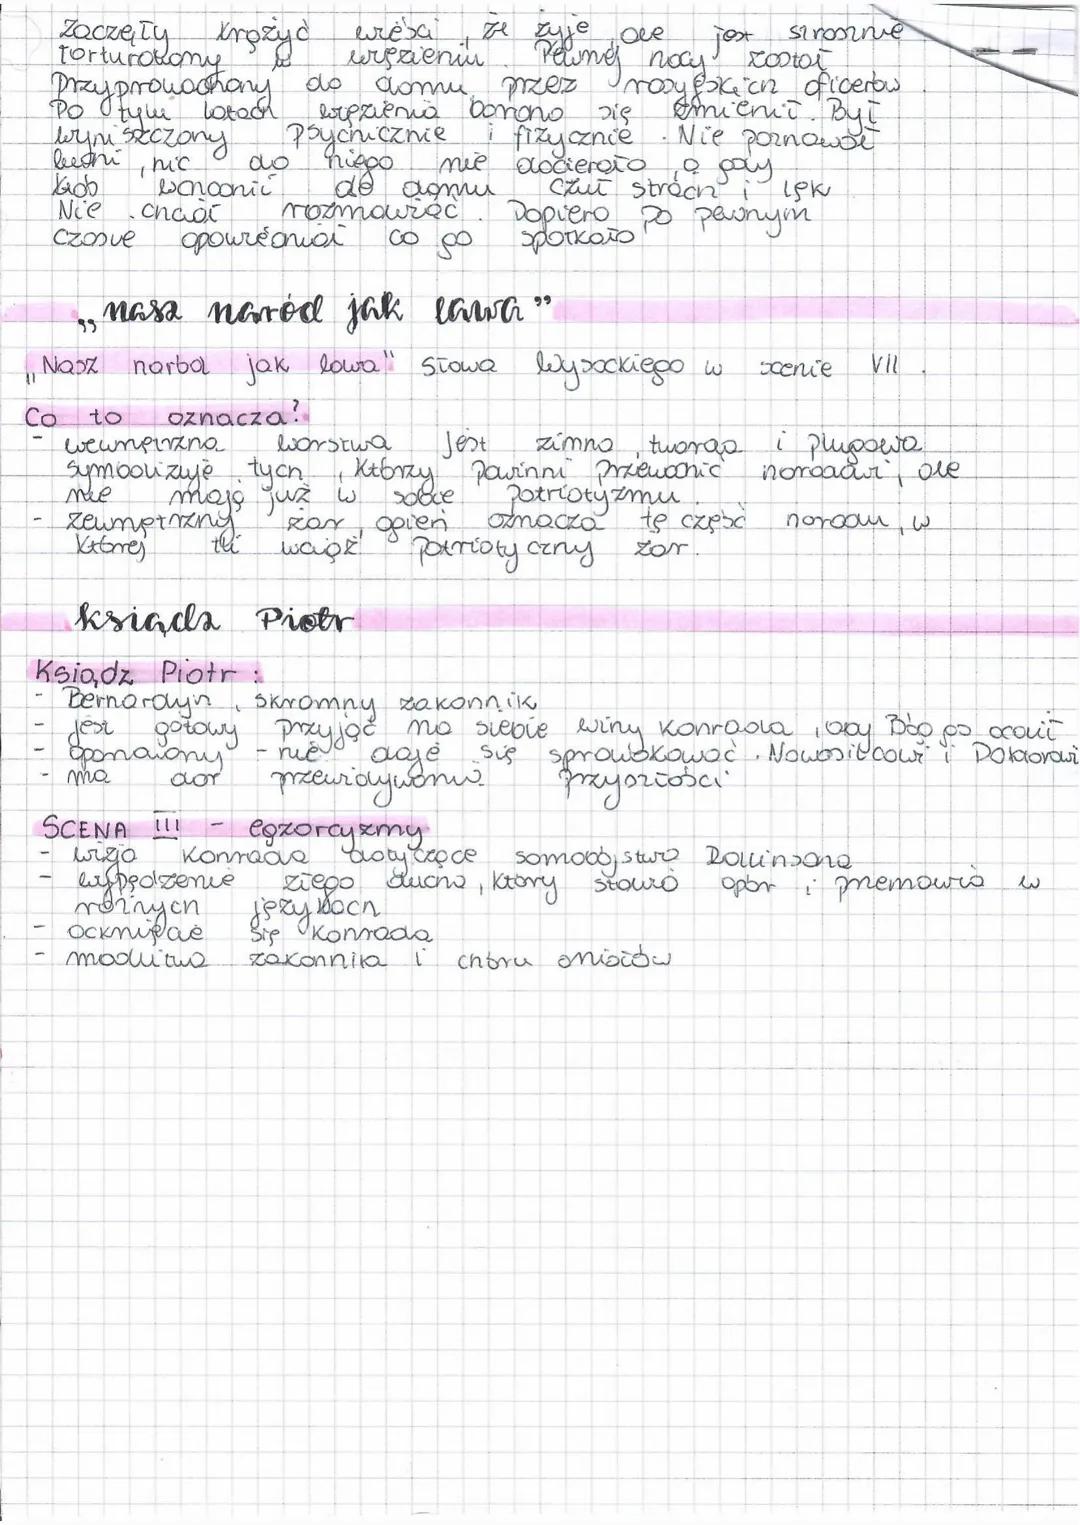 Zaczęły krążyć wieści, że żyje, ale jest strasznie
torturowany w więzieniu. Pewnej nocy został
przyprowadzony do domu przez rosyjskich oficerów.
Po tylu latach więzienia bardzo się zmienił. Był
wyniszczony psychicznie i fizycznie. Nie poznawał
ludzi, nic do niego nie docierało, a gdy
ktoś wchodził do domu czuł strach i lęk
Nie chciał rozmawiać. Dopiero po pewnym
czasie opowiedział co go spotkało
„nasz naród jak lawa"
„Nasz naród jak lawa" słowa Wysockiego w scenie VII.
Co to oznacza?
- wewnętrzna warstwa jest zimna, twarda i plugawa
symbolizuje tych, którzy powinni przewodzić narodowi, ale
nie mają już w sobie patriotyzmu.
- zewnętrzny żar, ogień oznacza tę część narodu, w
której tli wciąż patriotyczny żar.
ksiądz Piotr
Ksiądz Piotr:
- Bernardyn, skromny zakonnik
- jest gotowy przyjąć na siebie winy Konrada, aby Bóg go ocalił
- opanowany - nie daje się sprowokować Nowosilcowi i Doktorowi
- ma dar przewidywania przyszłości
SCENA III - egzorcyzmy
- wizja Konrada dotycząca samobójstwa Rollinsona
- wypędzenie złego ducha, który stawia opór i przemawia w
różnych językach
- ocknięcie się Konrada
- modlitwa zakonnika i chóru aniołów